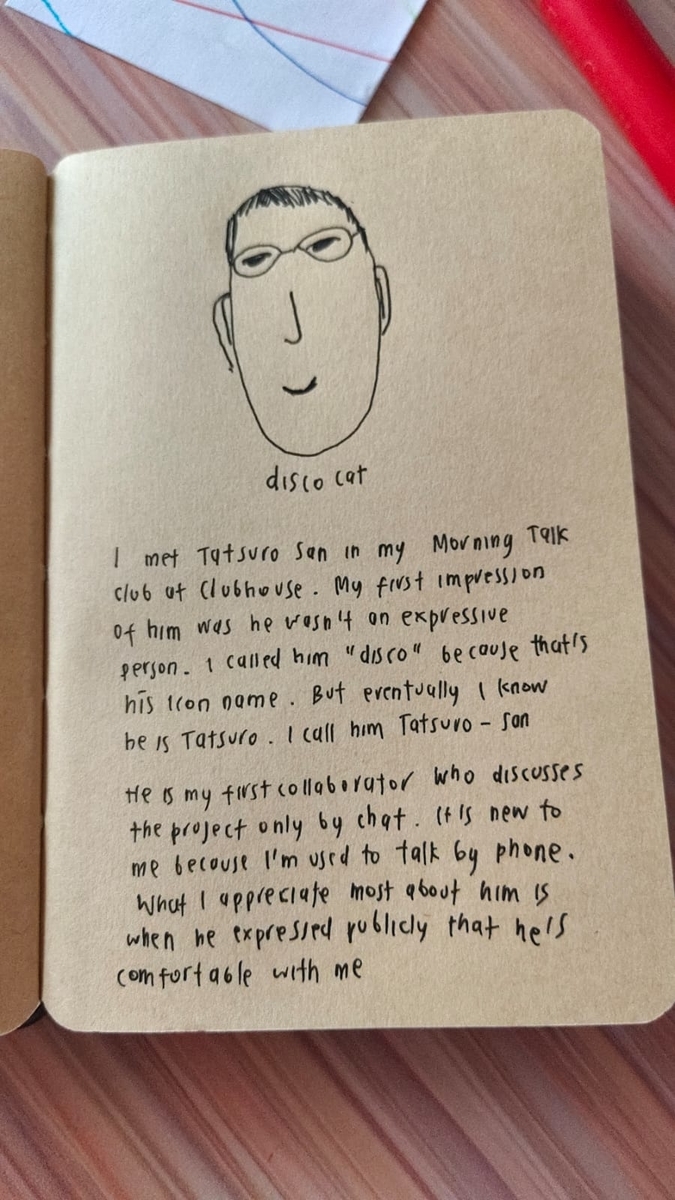 disco cat
I met Tatsuro San in my Morning Talk
club at Clubhouse. My first impression
of him was he wasn't an expressive
person. I called him "disco" because that's
his icon name. But eventually I know
he is Tatsuro. I call him Tatsuro - san
He is my first collaborator who discusses
the project only by chat. It is new to
me because I'm used to talk by phone.
What I appreciate most about him is
when he expressed publicly that he's
comfortable with me